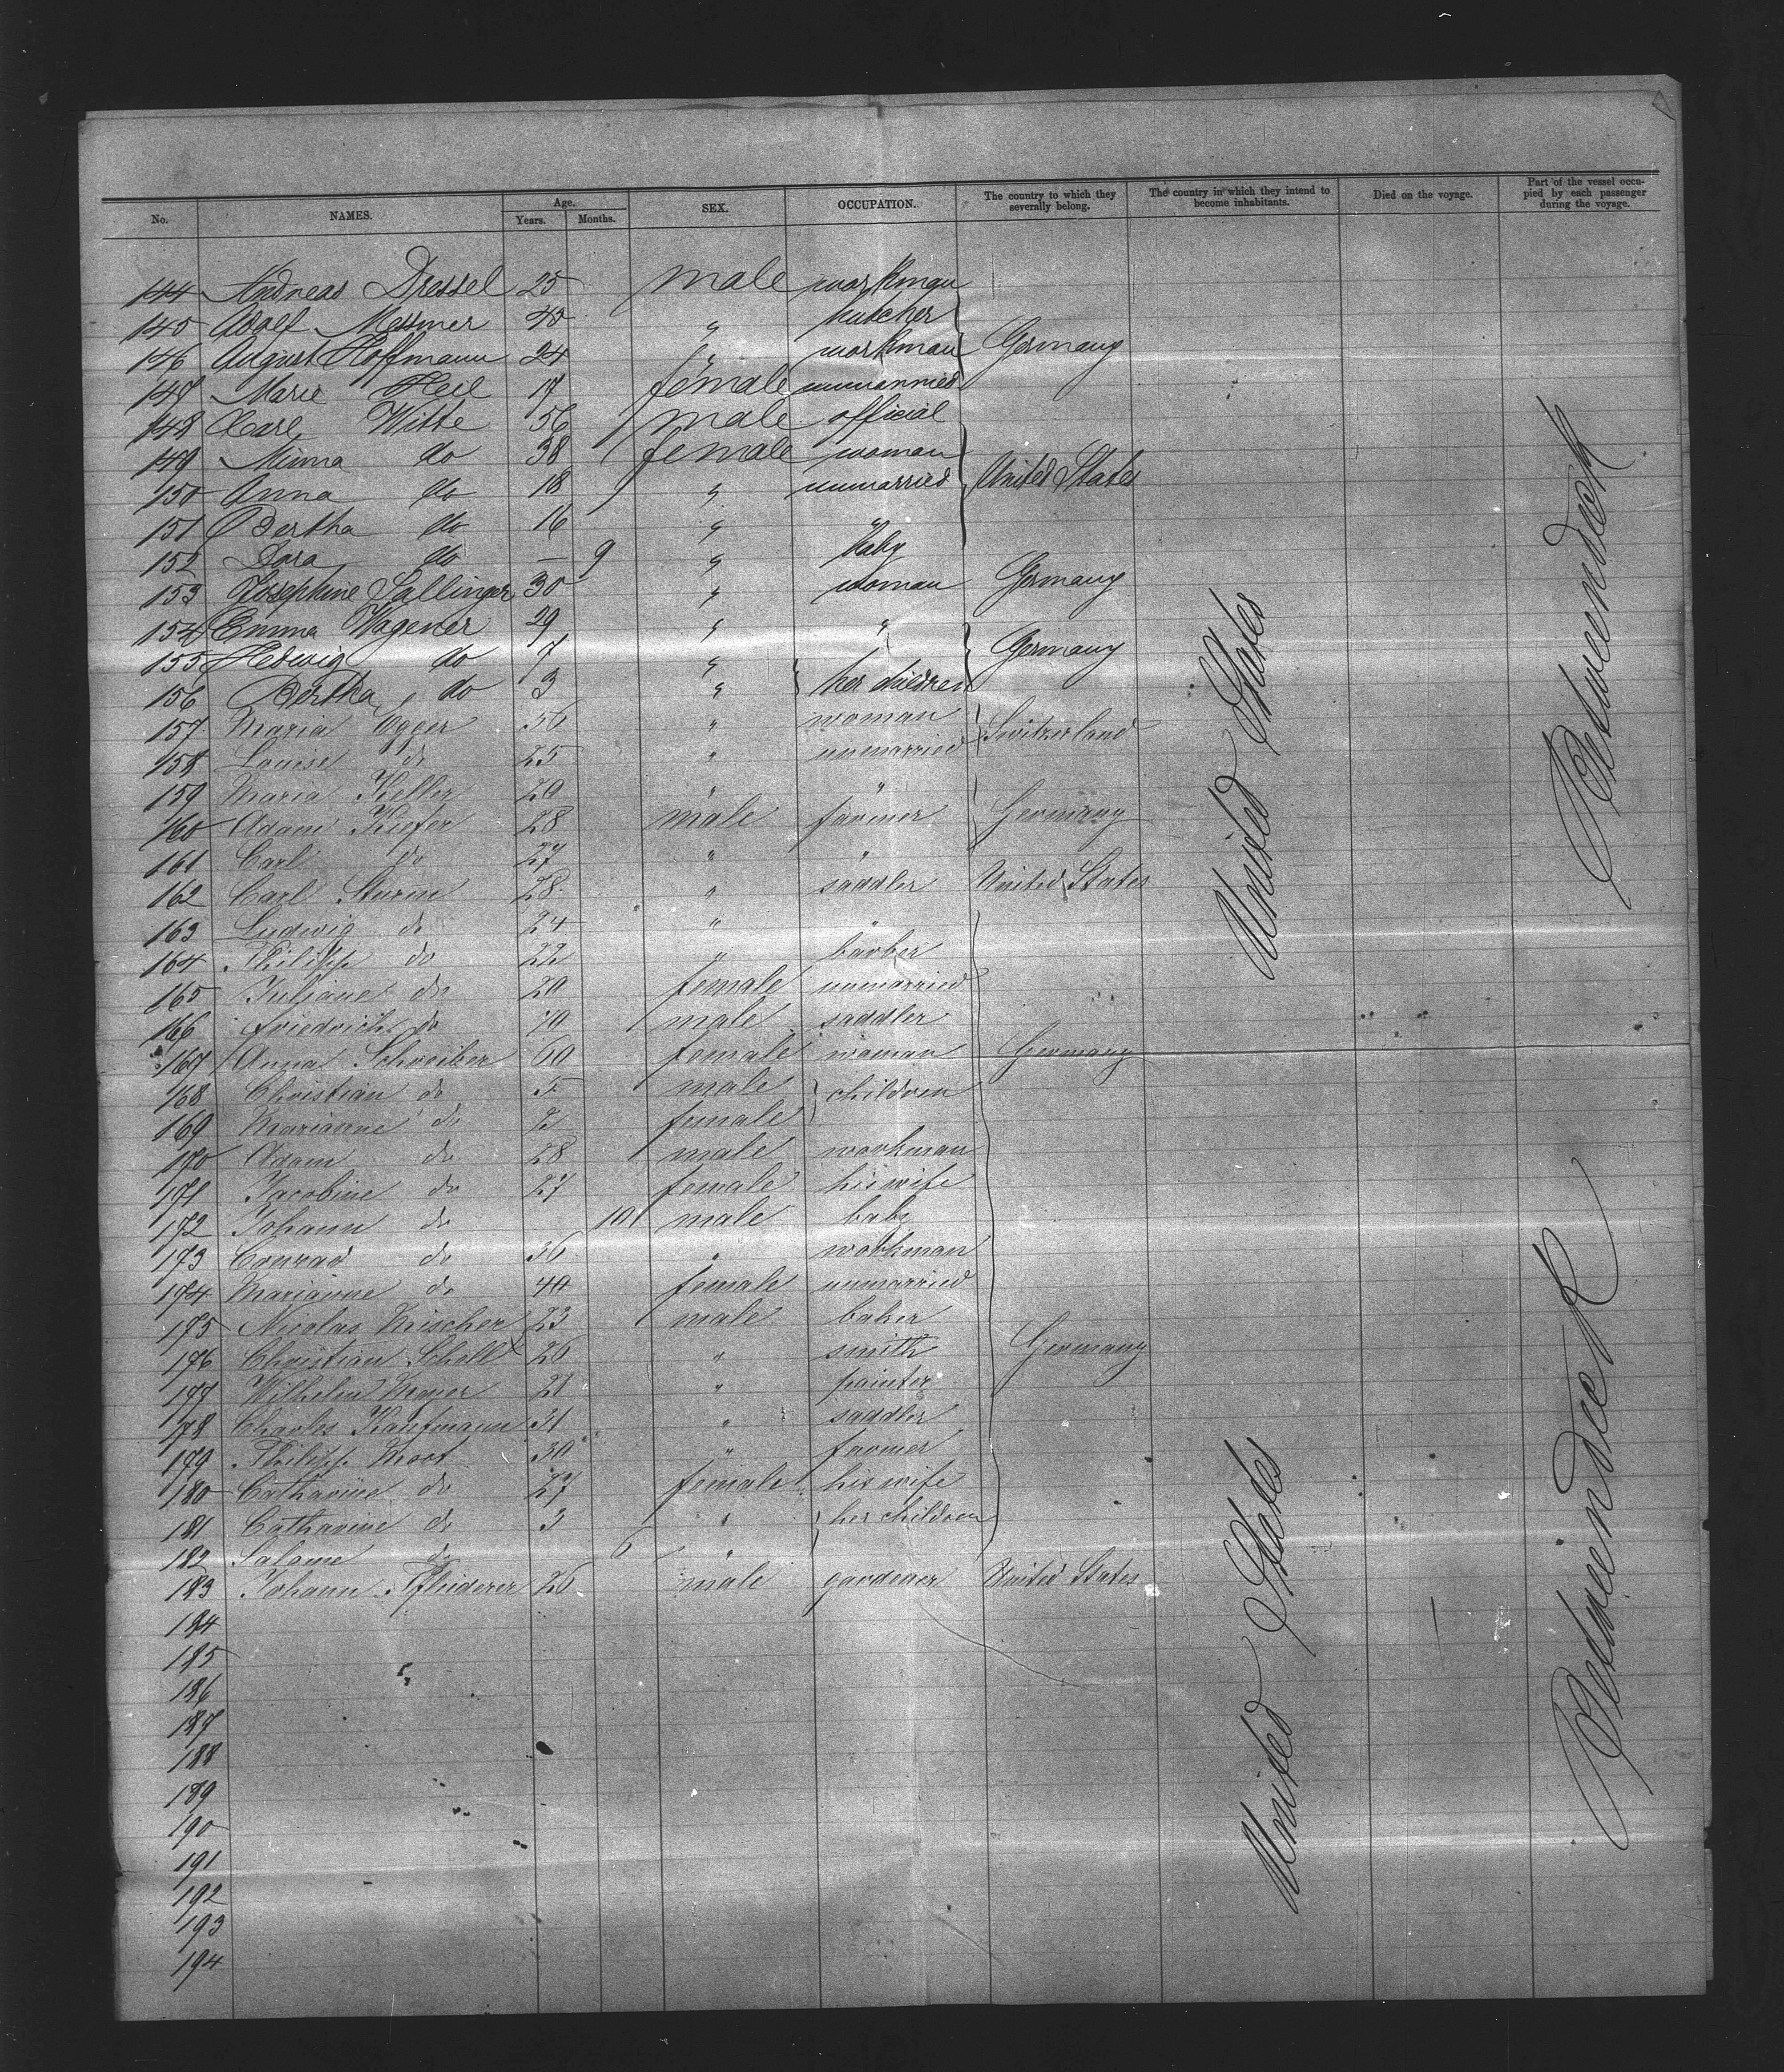 No. NAMES. Age. Years. Months. SEX. OCCUPATION. The country to which they severally belong. The country in which they intend to become inhabitants. Died on the voyage. Part of the vessel occupied by each passenger during the voyage.
144 Andreas Dressel 25 male workman
145 Adolf Messmer 45 " butcher
146 August Hoffmann 24 " workman Germany
147 Marie Heil 17 female unmarried
148 Carl Witte 56 male official
149 Minna do 38 female woman
150 Anna do 18 " unmarried United States
151 Bertha do 16 " "
152 Dora do — 9 " baby
153 Josephine Sallinger 30 " woman Germany
154 Emma Wagener 29 " "
155 Hedwig do 7 " Germany
156 Bertha do 3 " her children
157 Maria Egger 56 " woman Switzerland
158 Louise do 25 " unmarried
159 Maria Keller 20 " "
160 Adam Kiefer 28 male farmer Germany
161 Carl do 27 " "
162 Carl Sturm 28 " saddler United States
163 Ludwig do 24 " "
164 Philipp do 22 " barber
165 Juliane do 20 female unmarried
166 Friedrich do 70 male saddler
167 Anna Schreiber 60 female woman Germany
168 Christian do 5 male children
169 Marianne do 2 female
170 Adam do 28 male workman
171 Jacobine do 27 female his wife
172 Johann do 10 male baby
173 Conrad do 36 " workman
174 Marianne do 44 female unmarried
175 Nicolas Krischer 23 male baker
176 Christian Scholl 26 " smith Germany
177 Wilhelm Mayer 21 " painter
178 Charles Kaufmann 31 " saddler
179 Philipp Moot 30 " farmer
180 Catharine do 27 female his wife
181 Catharine do 3 " her children
182 Salome do 6 "
183 Johann Pfleiderer 26 male gardener United States
184
185
186
187
188
189
190
191
192
193
194
United States
United States
Betweendeck
Betweendeck